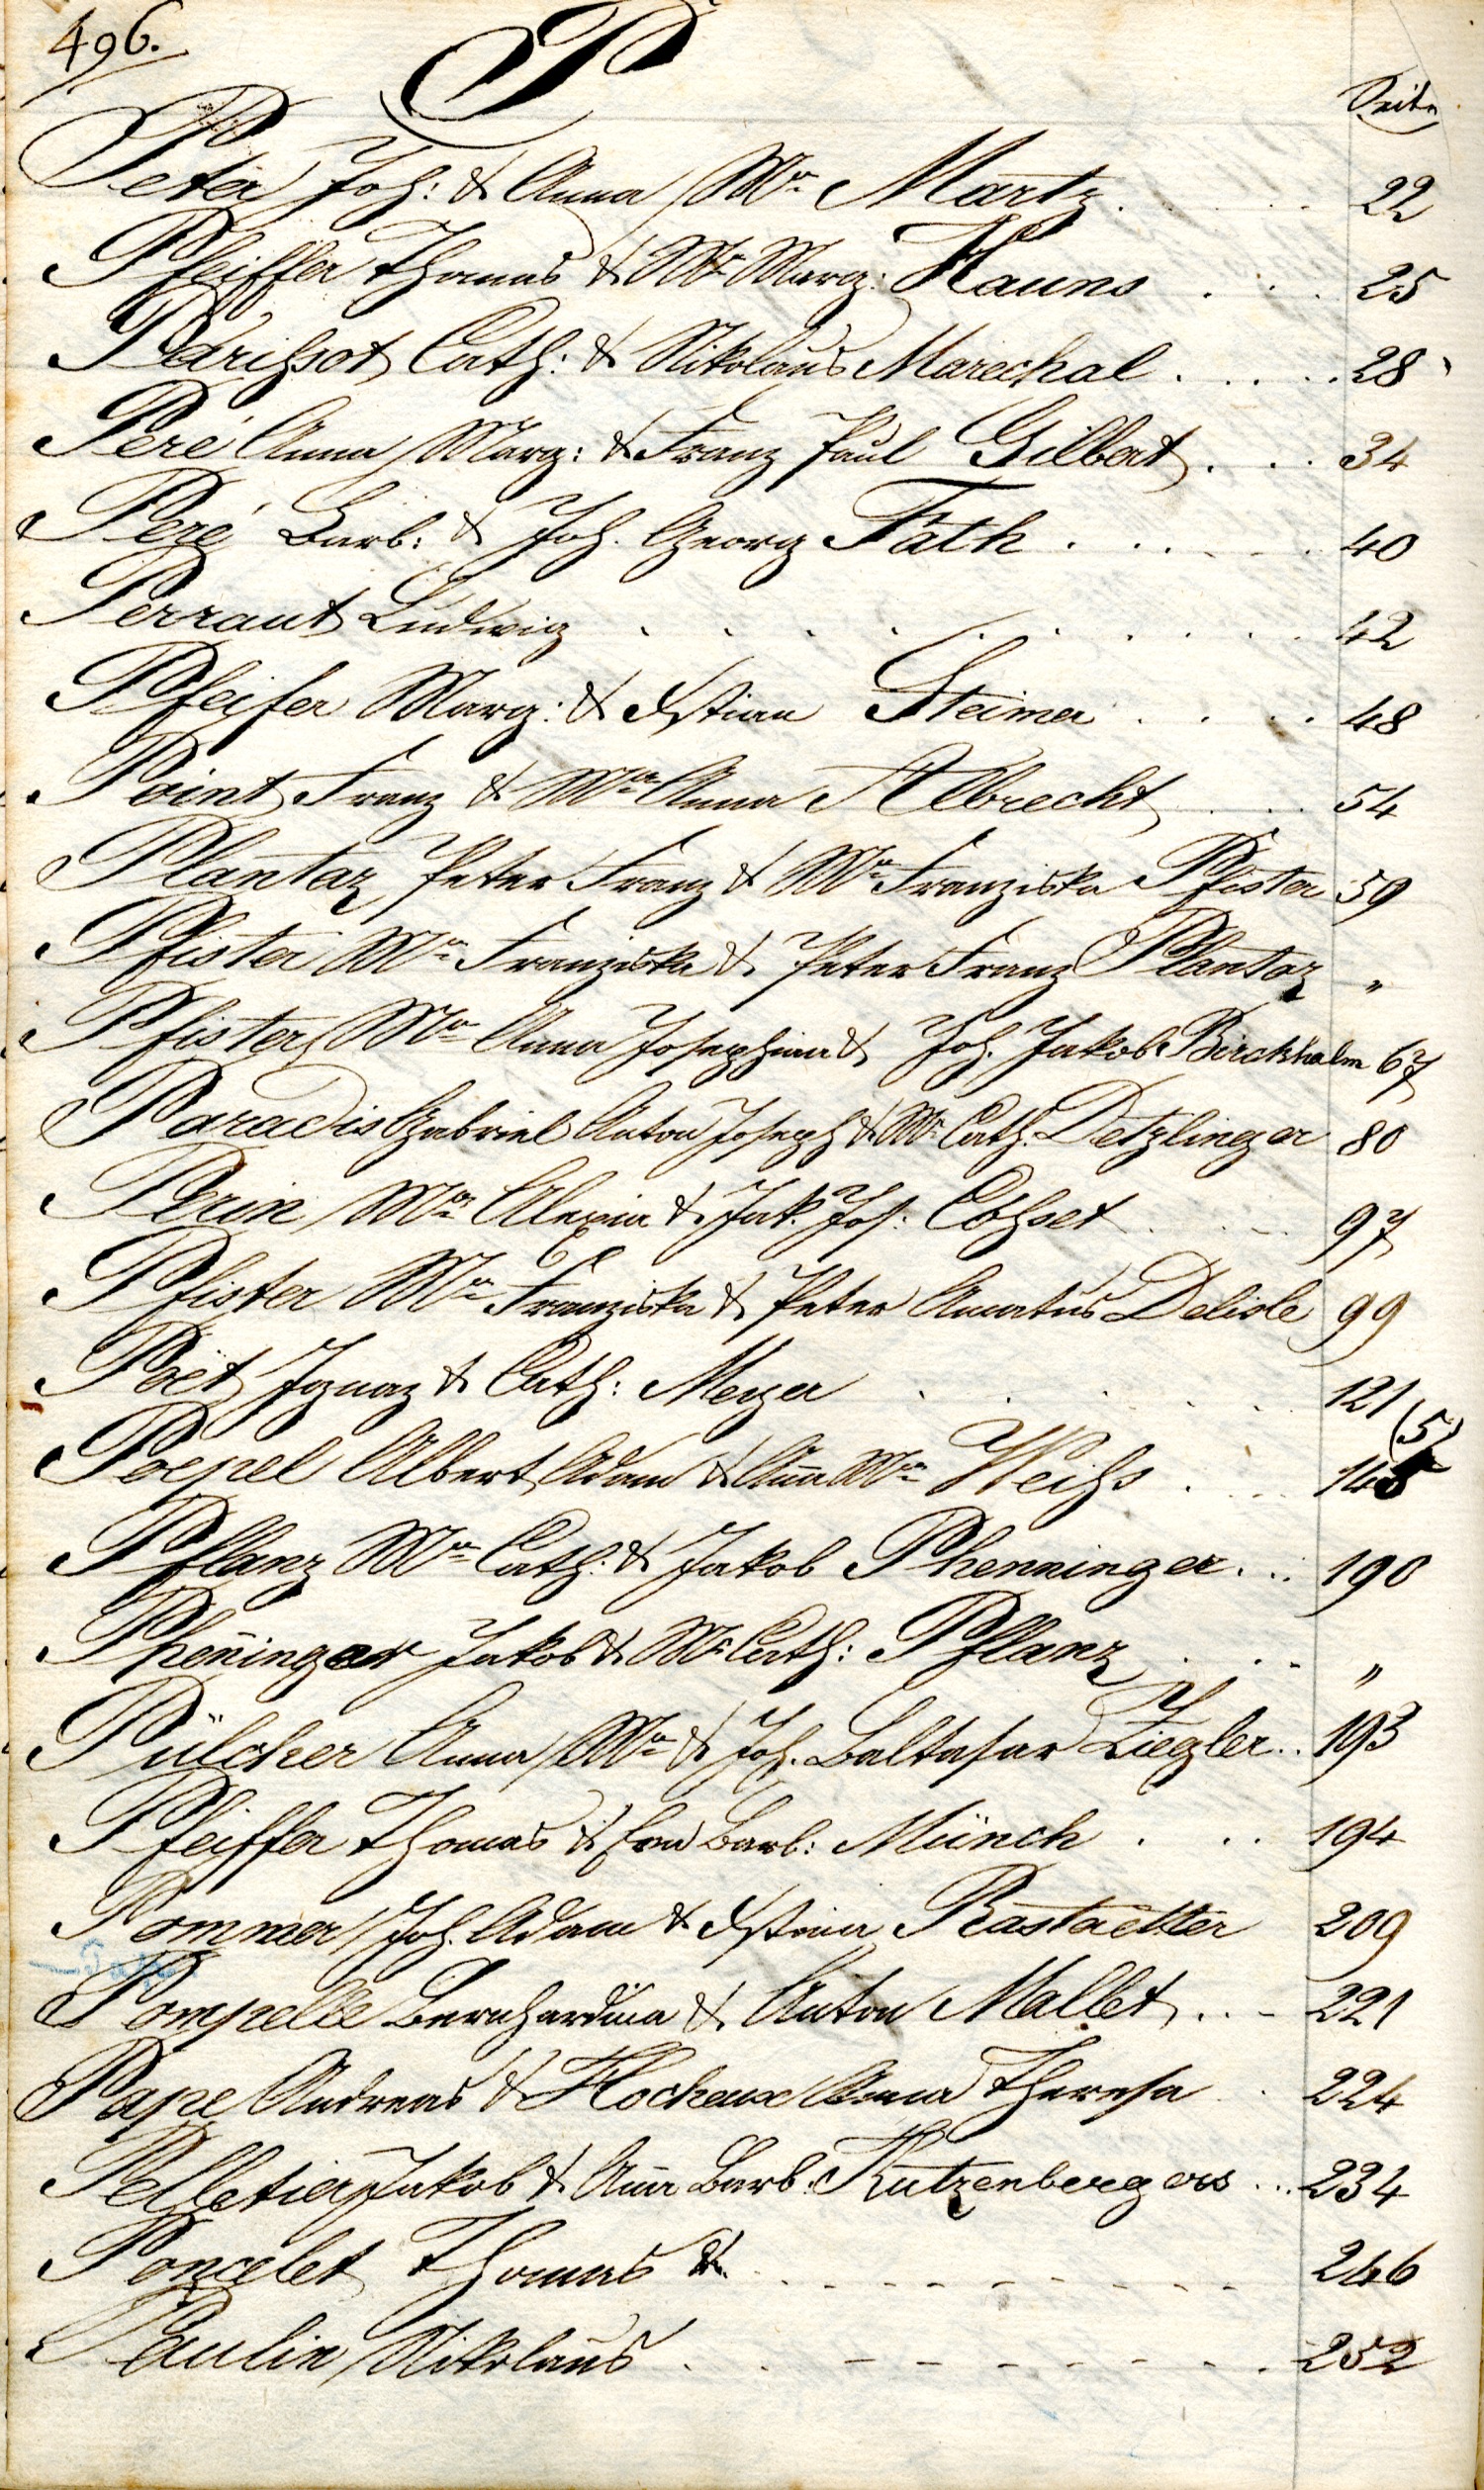 496.
P
Seite
Peter Joh: & Anna Mᵃ Martz 22
Pfeiffer Thomas & Mᵃ Marg: Hauns 25
Parißot Cath: & Nikolaus Marechal 28
Peré Anna Marg: & Franz Paul Gilbert 34
Peré Barb: & Joh. Georg Fath 40
Perraut Ludwig 42
Pfeifer Marg: & Xstian Steimer 48
Point Franz & Mᵃ Anna Albrecht 54
Plantaz Peter Franz & Mᵃ Franziska Pfister 59
Pfister Mᵃ Franziska & Peter Franz Plantaz "
Pfister Mᵃ Anna Josephina & Joh. Jakob Birckhalm 67
Paradis Gabriel Anton Joseph & Mᵃ Cath: Detzlinger 80
Perin Mᵃ Alexia & Jak. Jos: Cohset 97
Pfister Mᵃ Franziska & Peter Amatus Delisle 99
Poët Ignaz & Cath: Meyer 121
Poepel Albert Adam & Aña Mᵃ Weihs 145 (5)
Pflanz Mᵃ Cath: & Jakob Phenninger 190
Pheñinger Jakob & Mᵃ Cath: Pflanz "
Pülcher Anna Mᵃ & Joh. Baltasar Ziegler 193
Pfeiffer Thomas & Eva Barb: Münch 194
Pommer Joh. Adam & Xstina Rastaetter 209
Pompelle Bernhardina & Anton Mallet 221
Pape Andreas & Hocheux Anna Theresa 224
Pelletier Jakob & Aña Barb: Kutzenbergers 234
Poncelet Thomas & 246
Paulin Nikolaus 252